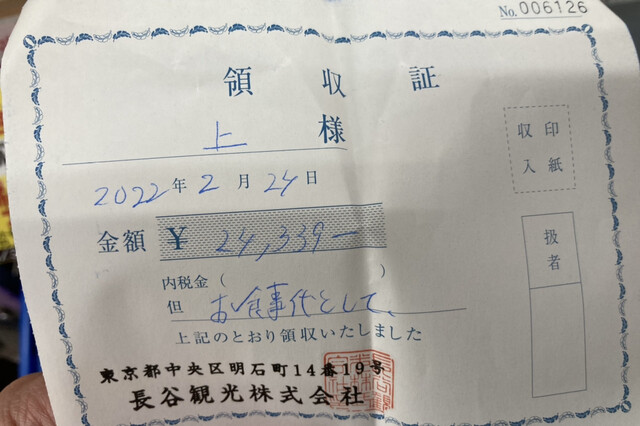 No. 006126
領収証
上 様
2022年2月24日
収入印紙
金額 ¥ 24,339-
内税金( )
但 お食事代として、
扱者
上記のとおり領収いたしました
東京都中央区明石町14番19号
長谷観光株式会社